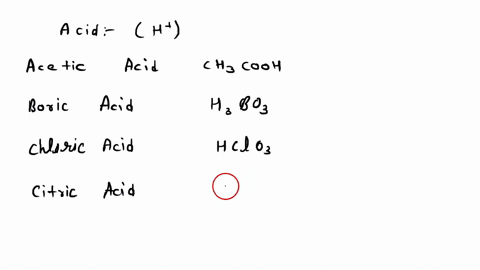 Acid:- (H⁺)
Acetic Acid CH₃COOH
Boric Acid H₃BO₃
Chloric Acid HClO₃
Citric Acid